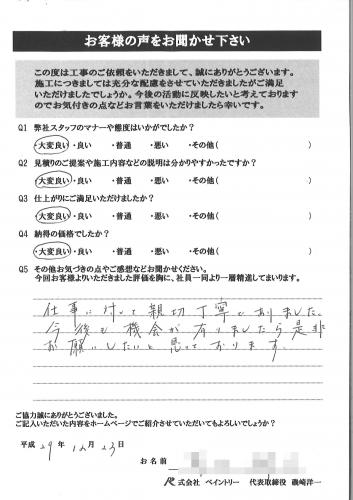 お客様の声をお聞かせ下さい
この度は工事のご依頼をいただきまして、誠にありがとうございます。
施工につきましては充分な配慮をさせていただきましたがご満足
いただけましたでしょうか。今後の活動に反映したいと考えております
のでお気付きの点などお言葉をいただけましたら幸いです。
Q1 弊社スタッフのマナーや態度はいかがでしたか？
・大変良い ・良い ・普通 ・悪い ・その他( )
Q2 見積りのご提案や施工内容などの説明は分かりやすかったですか？
・大変良い ・良い ・普通 ・悪い ・その他( )
Q3 仕上がりにご満足いただけましたか？
・大変良い ・良い ・普通 ・悪い ・その他( )
Q4 納得の価格でしたか？
・大変良い ・良い ・普通 ・悪い ・その他( )
Q5 その他お気づきの点やご感想などお聞かせください。
今回お客様よりいただきました評価を胸に、社員一同より一層精進してまいります。
仕事に対して親切丁寧でありました。
今後も機会が有りましたら是非
お願いしたいと思っております。
ご協力誠にありがとうございました。
ご記入いただいた内容をホームページでご紹介させていただいてもよろしいでしょうか？
平成 29年 12月 23日
お名前
株式会社 ペイントリー 代表取締役 磯崎洋一